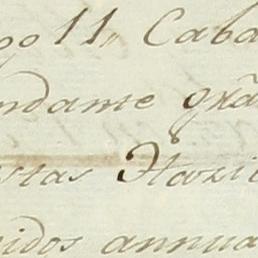 go 11, Caba
ndame grã
stas Itazi
nidos annua